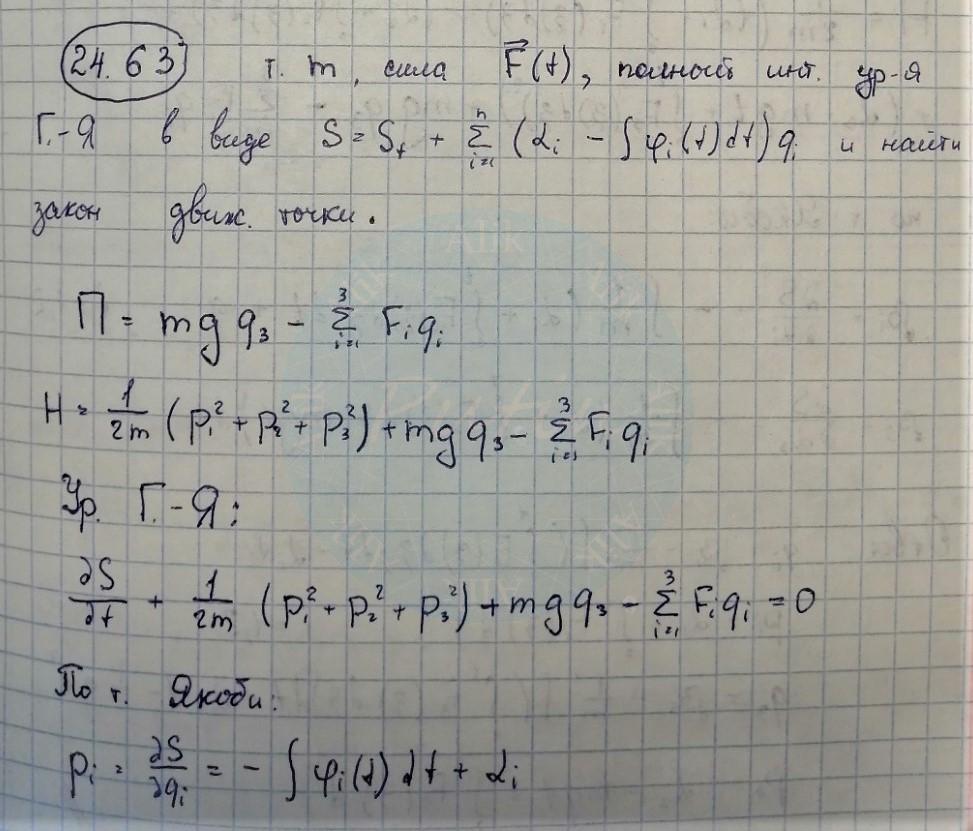 24.63 т. m, сила F⃗(t), полность инт. ур-я
Г.-Я в виде S = S_t + Σ_{i=1}^{n} (α_i - ∫φ_i(t)dt)q_i и найти
закон движ. точки.
П = mg q_3 - Σ_{i=1}^{3} F_i q_i
H = 1/2m (p_1^2 + p_2^2 + p_3^2) + mg q_3 - Σ_{i=1}^{3} F_i q_i
Ур. Г.-Я:
∂S/∂t + 1/2m (p_1^2 + p_2^2 + p_3^2) + mg q_3 - Σ_{i=1}^{3} F_i q_i = 0
По т. Якоби:
p_i = ∂S/∂q_i = - ∫ φ_i(t) dt + α_i